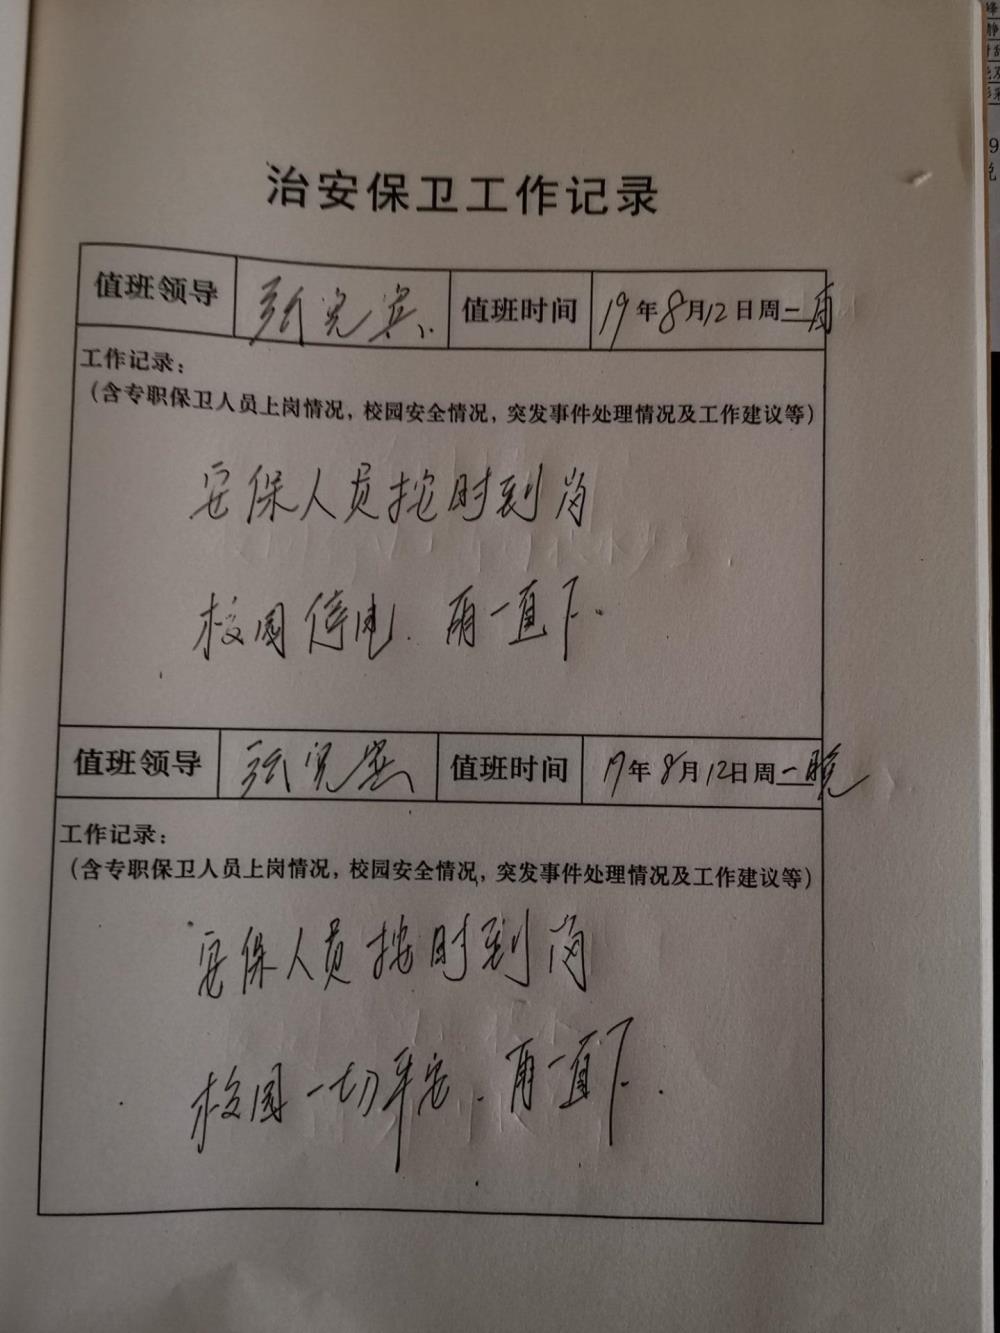 治安保卫工作记录
值班领导 张宪宾 值班时间 19年8月12日周一
工作记录：
（含专职保卫人员上岗情况，校园安全情况，突发事件处理情况及工作建议等）
安保人员按时到岗
校园停电、雨一直下.
值班领导 张宪宾 值班时间 19年8月12日周一晚
工作记录：
（含专职保卫人员上岗情况，校园安全情况，突发事件处理情况及工作建议等）
安保人员按时到岗
校园一切平安、雨一直下.